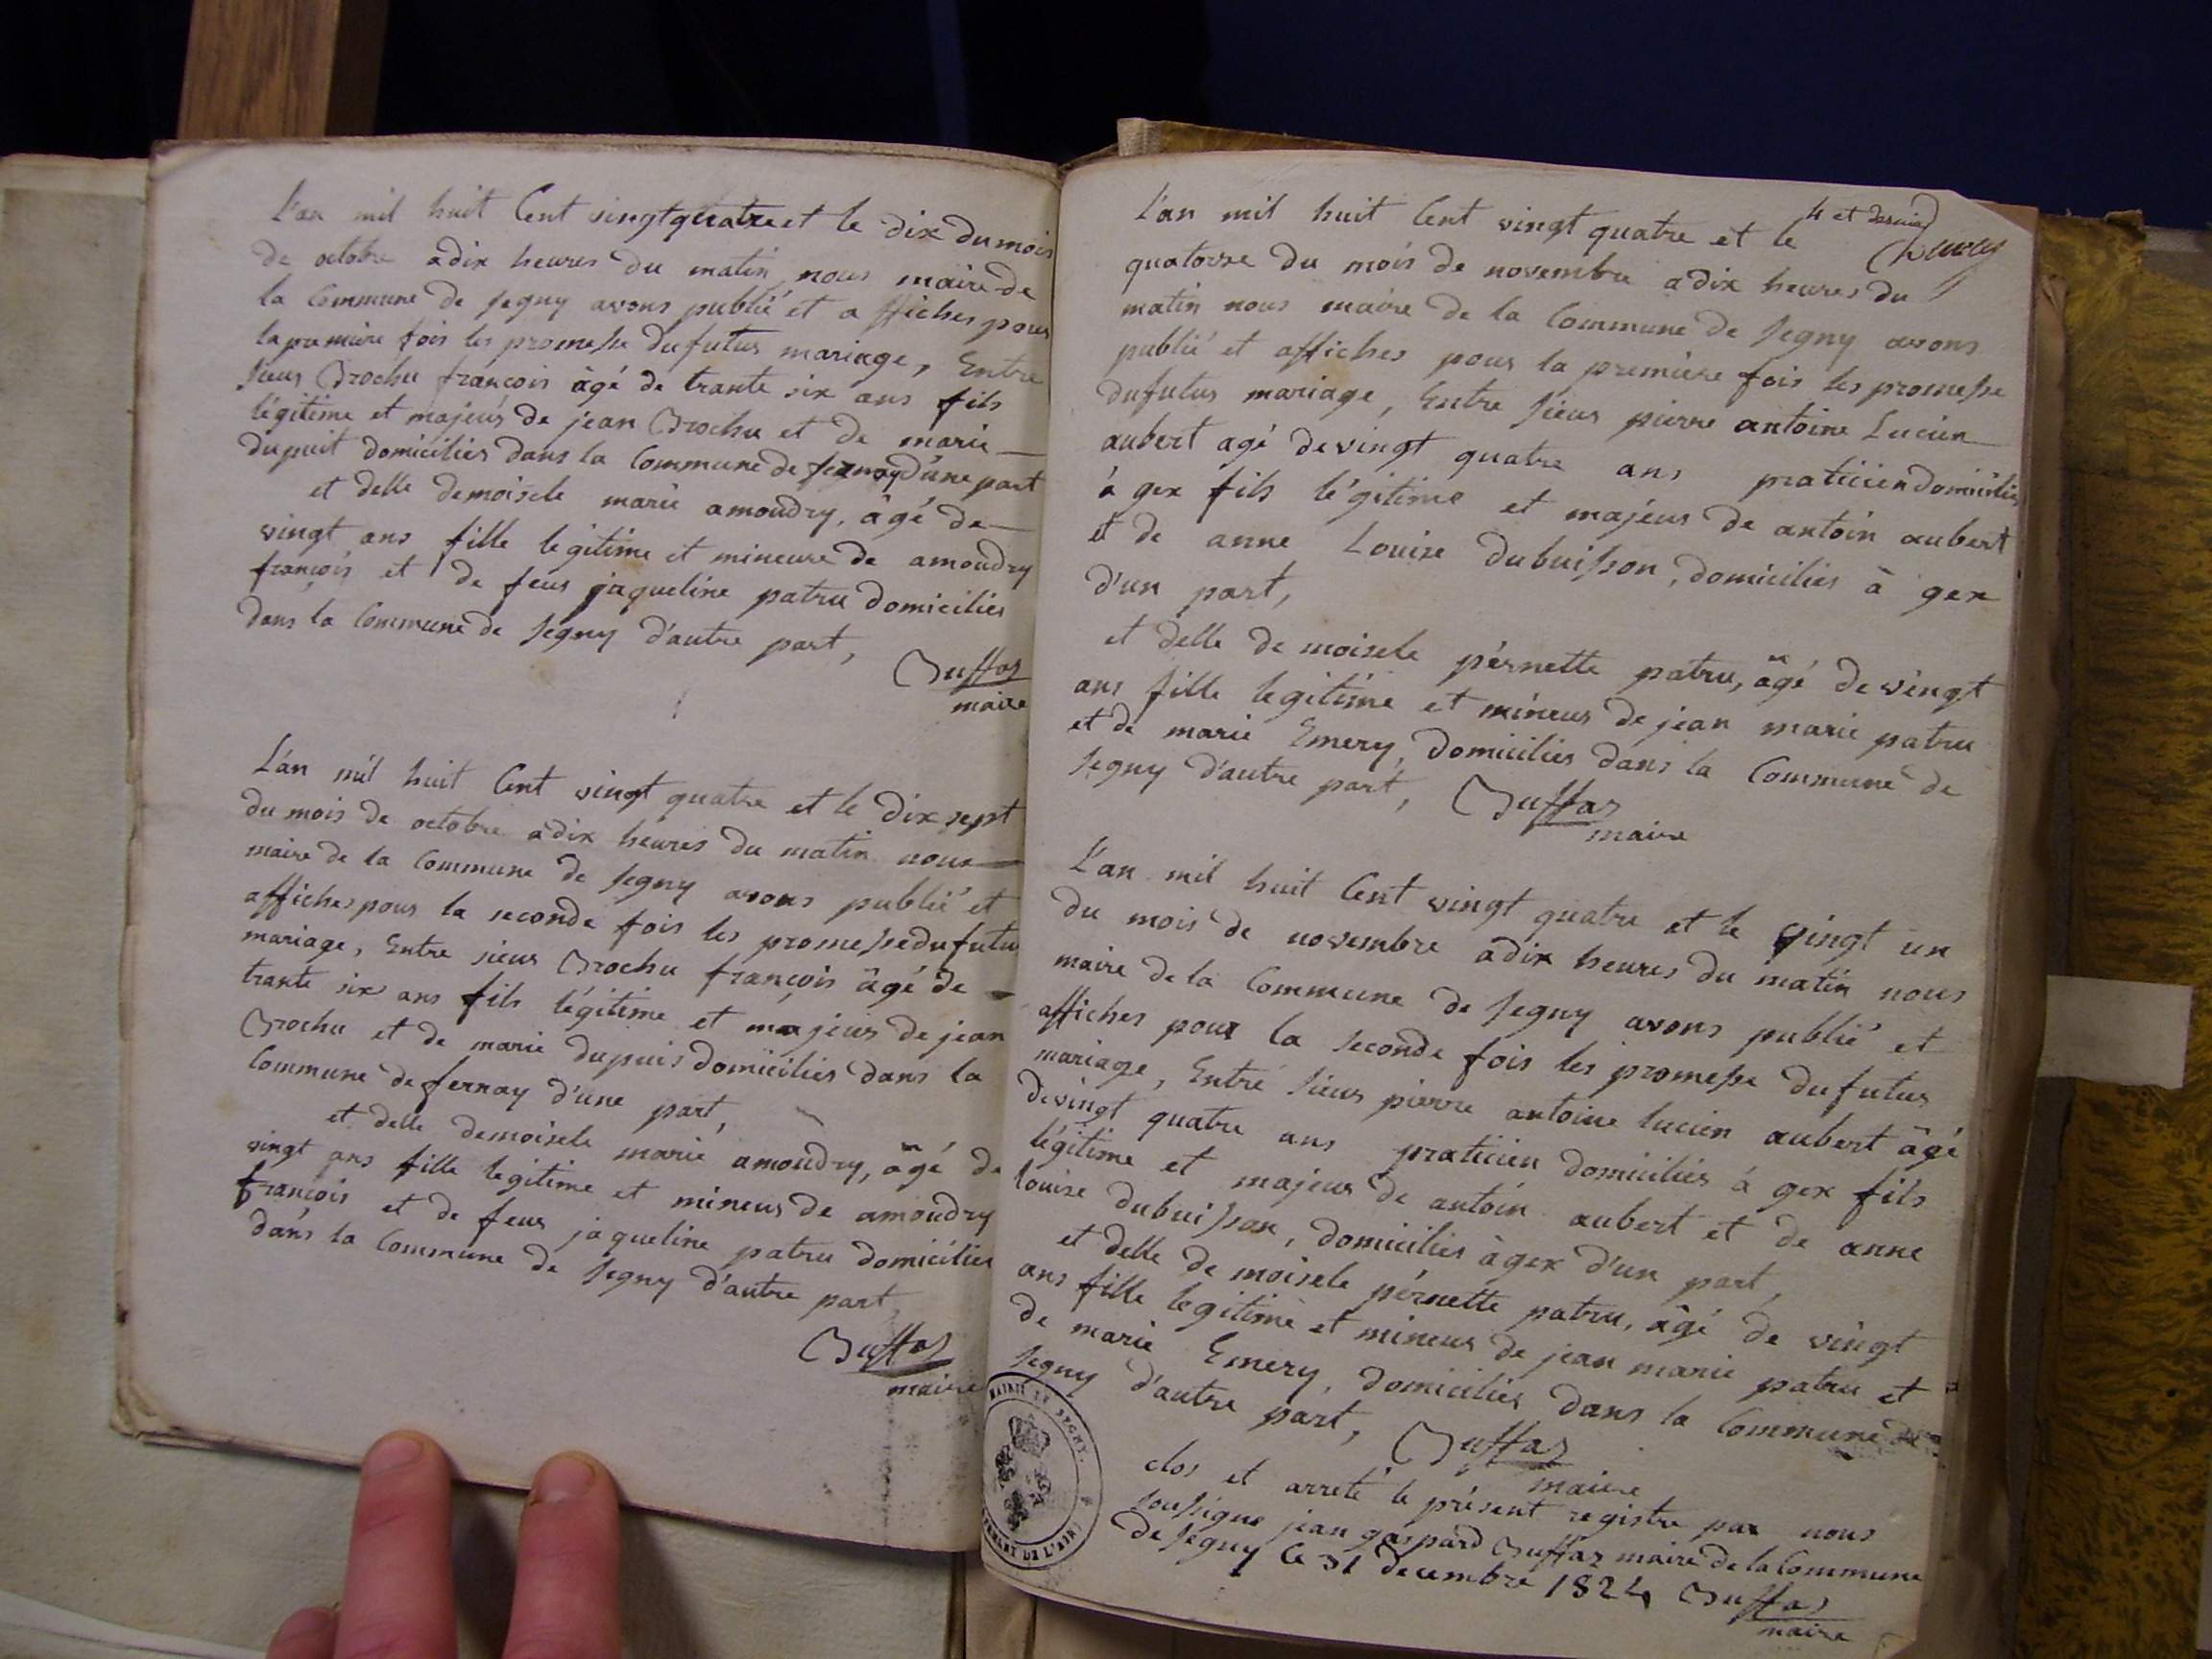 L'an mil huit Cent vingt quatre et le dix du mois
de octobre a dix heures du matin nous maire de
la Commune de Segny avons publié et affiches pour
la premiere fois les promesse du futur mariage, Entre
sieur Brochu françois âgé de trante six ans fils
légitime et majeur de jean Brochu et de marie
dupuit domiciliés dans la Commune de fernay d'une part
et delle demoisele marie amoudry, âgé de
vingt ans fille legitime et mineure de amoudry
françois et de feus jaqueline patru domiciliés
dans la Commune de Segny d'autre part,
Buffaz
maire
L'an mil huit Cent vingt quatre et le dix sept
du mois de octobre a dix heures du matin nous
maire de la Commune de Segny avons publié et
affiches pour la seconde fois les promesse du futu
mariage, Entre sieur Brochu françois âgé de
trante six ans fils légitime et majeur de jean
Brochu et de marie dupuis domiciliés dans la
Commune de fernay d'une part,
et delle demoisele marie amoudry, âgé de
vingt ans fille legitime et mineur de amoudry
françois et de feus jaqueline patru domiciliés
dans la Commune de Segny d'autre part
Buffaz
maire
4 et dernier
L'an mil huit Cent vingt quatre et le
quatorze du mois de novembre a dix heures du
matin nous maire de la Commune de Segny avons
publié et affiches pour la premiere fois les promesse
du futur mariage, Entre sieur pierre antoine Lucien
aubert agé de vingt quatre ans praticien domiciliés
à gex fils légitime et majeur de antoin aubert
et de anne Louise dubuisson, domiciliés à gex
d'un part,
et delle de moisele pérnette patru, âgé de vingt
ans fille legitime et mineur de jean marie patru
et de marie Emery, domiciliés dans la Commune de
Segny d'autre part, Buffaz
maire
L'an mil huit Cent vingt quatre et le vingt un
du mois de novembre a dix heures du matin nous
maire de la Commune de Segny avons publié et
affiches pour la seconde fois les promesse du futur
mariage, Entre sieur pierre antoine lucien aubert âgé
de vingt quatre ans praticien domiciliés à gex fils
légitime et majeur de antoin aubert et de anne
louise dubuisson, domiciliés à gex d'un part,
et delle de moisele pérnette patru, âgé de vingt
ans fille legitime et mineur de jean marie patru et
de marie Emery, domiciliés dans la Commune de
Segny d'autre part, Buffaz
maire
clos et arreté le présent registre par nous
soussigne jean gaspard Buffaz maire de la Commune
de Segny le 31 decembre 1824 Buffaz
maire
MAIRIE DE SEGNY.
DE L'AIN